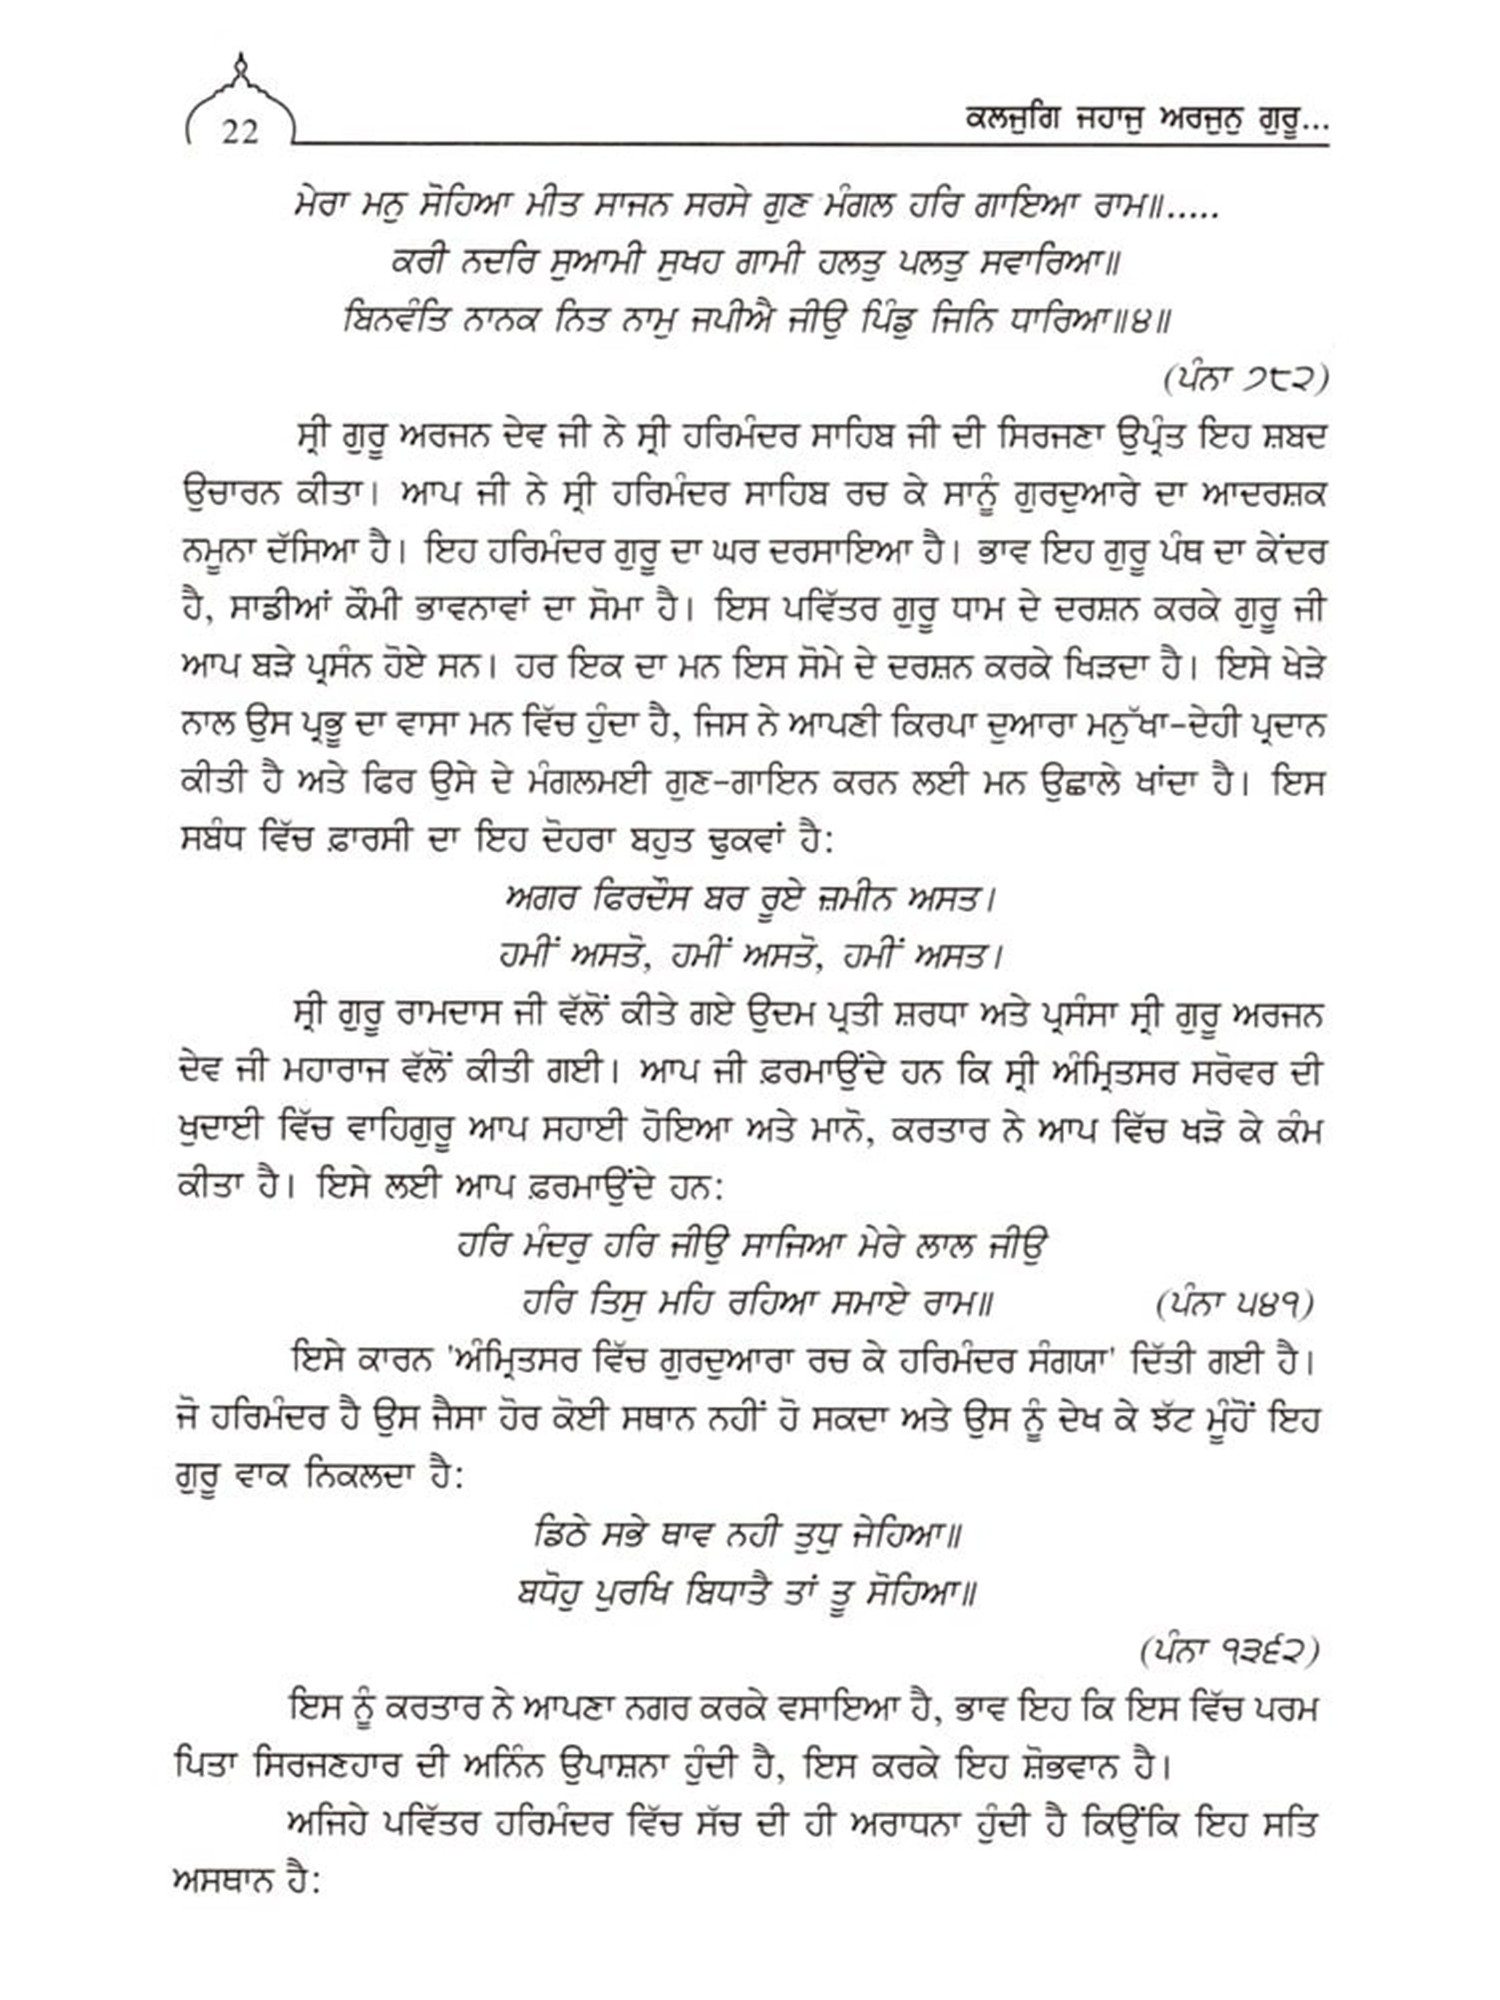 22
ਕਲਜੁਗਿ ਜਹਾਜੁ ਅਰਜੁਨੁ ਗੁਰੂ...
ਮੇਰਾ ਮਨੁ ਸੋਹਿਆ ਮੀਤ ਸਾਜਨ ਸਰਸੇ ਗੁਣ ਮੰਗਲ ਹਰਿ ਗਾਇਆ ਰਾਮ॥.....
ਕਰੀ ਨਦਰਿ ਸੁਆਮੀ ਸੁਖਹ ਗਾਮੀ ਹਲਤੁ ਪਲਤੁ ਸਵਾਰਿਆ॥
ਬਿਨਵੰਤਿ ਨਾਨਕ ਨਿਤ ਨਾਮੁ ਜਪੀਐ ਜੀਉ ਪਿੰਡੁ ਜਿਨਿ ਧਾਰਿਆ॥੪॥
(ਪੰਨਾ ੭੮੨)
ਸ੍ਰੀ ਗੁਰੂ ਅਰਜਨ ਦੇਵ ਜੀ ਨੇ ਸ੍ਰੀ ਹਰਿਮੰਦਰ ਸਾਹਿਬ ਜੀ ਦੀ ਸਿਰਜਣਾ ਉਪ੍ਰੰਤ ਇਹ ਸ਼ਬਦ
ਉਚਾਰਨ ਕੀਤਾ। ਆਪ ਜੀ ਨੇ ਸ੍ਰੀ ਹਰਿਮੰਦਰ ਸਾਹਿਬ ਰਚ ਕੇ ਸਾਨੂੰ ਗੁਰਦੁਆਰੇ ਦਾ ਆਦਰਸ਼ਕ
ਨਮੂਨਾ ਦੱਸਿਆ ਹੈ। ਇਹ ਹਰਿਮੰਦਰ ਗੁਰੂ ਦਾ ਘਰ ਦਰਸਾਇਆ ਹੈ। ਭਾਵ ਇਹ ਗੁਰੂ ਪੰਥ ਦਾ ਕੇਂਦਰ
ਹੈ, ਸਾਡੀਆਂ ਕੌਮੀ ਭਾਵਨਾਵਾਂ ਦਾ ਸੋਮਾ ਹੈ। ਇਸ ਪਵਿੱਤਰ ਗੁਰੂ ਧਾਮ ਦੇ ਦਰਸ਼ਨ ਕਰਕੇ ਗੁਰੂ ਜੀ
ਆਪ ਬੜੇ ਪ੍ਰਸੰਨ ਹੋਏ ਸਨ। ਹਰ ਇਕ ਦਾ ਮਨ ਇਸ ਸੋਮੇ ਦੇ ਦਰਸ਼ਨ ਕਰਕੇ ਖਿੜਦਾ ਹੈ। ਇਸੇ ਖੇੜੇ
ਨਾਲ ਉਸ ਪ੍ਰਭੂ ਦਾ ਵਾਸਾ ਮਨ ਵਿੱਚ ਹੁੰਦਾ ਹੈ, ਜਿਸ ਨੇ ਆਪਣੀ ਕਿਰਪਾ ਦੁਆਰਾ ਮਨੁੱਖਾ-ਦੇਹੀ ਪ੍ਰਦਾਨ
ਕੀਤੀ ਹੈ ਅਤੇ ਫਿਰ ਉਸੇ ਦੇ ਮੰਗਲਮਈ ਗੁਣ-ਗਾਇਨ ਕਰਨ ਲਈ ਮਨ ਉਛਾਲੇ ਖਾਂਦਾ ਹੈ। ਇਸ
ਸਬੰਧ ਵਿੱਚ ਫ਼ਾਰਸੀ ਦਾ ਇਹ ਦੋਹਰਾ ਬਹੁਤ ਢੁਕਵਾਂ ਹੈ:
ਅਗਰ ਫਿਰਦੌਸ ਬਰ ਰੂਏ ਜ਼ਮੀਨ ਅਸਤ।
ਹਮੀਂ ਅਸਤੋ, ਹਮੀਂ ਅਸਤੋ, ਹਮੀਂ ਅਸਤ।
ਸ੍ਰੀ ਗੁਰੂ ਰਾਮਦਾਸ ਜੀ ਵੱਲੋਂ ਕੀਤੇ ਗਏ ਉਦਮ ਪ੍ਰਤੀ ਸ਼ਰਧਾ ਅਤੇ ਪ੍ਰਸੰਸਾ ਸ੍ਰੀ ਗੁਰੂ ਅਰਜਨ
ਦੇਵ ਜੀ ਮਹਾਰਾਜ ਵੱਲੋਂ ਕੀਤੀ ਗਈ। ਆਪ ਜੀ ਫ਼ਰਮਾਉਂਦੇ ਹਨ ਕਿ ਸ੍ਰੀ ਅੰਮ੍ਰਿਤਸਰ ਸਰੋਵਰ ਦੀ
ਖੁਦਾਈ ਵਿੱਚ ਵਾਹਿਗੁਰੂ ਆਪ ਸਹਾਈ ਹੋਇਆ ਅਤੇ ਮਾਨੋ, ਕਰਤਾਰ ਨੇ ਆਪ ਵਿੱਚ ਖੜੋ ਕੇ ਕੰਮ
ਕੀਤਾ ਹੈ। ਇਸੇ ਲਈ ਆਪ ਫ਼ਰਮਾਉਂਦੇ ਹਨ:
ਹਰਿ ਮੰਦਰੁ ਹਰਿ ਜੀਉ ਸਾਜਿਆ ਮੇਰੇ ਲਾਲ ਜੀਉ
ਹਰਿ ਤਿਸੁ ਮਹਿ ਰਹਿਆ ਸਮਾਏ ਰਾਮ॥ (ਪੰਨਾ ੫੪੧)
ਇਸੇ ਕਾਰਨ 'ਅੰਮ੍ਰਿਤਸਰ ਵਿੱਚ ਗੁਰਦੁਆਰਾ ਰਚ ਕੇ ਹਰਿਮੰਦਰ ਸੰਗਯਾ' ਦਿੱਤੀ ਗਈ ਹੈ।
ਜੋ ਹਰਿਮੰਦਰ ਹੈ ਉਸ ਜੈਸਾ ਹੋਰ ਕੋਈ ਸਥਾਨ ਨਹੀਂ ਹੋ ਸਕਦਾ ਅਤੇ ਉਸ ਨੂੰ ਦੇਖ ਕੇ ਝੱਟ ਮੂੰਹੋਂ ਇਹ
ਗੁਰੂ ਵਾਕ ਨਿਕਲਦਾ ਹੈ:
ਡਿਠੇ ਸਭੇ ਥਾਵ ਨਹੀ ਤੁਧੁ ਜੇਹਿਆ॥
ਬਧੋਹੁ ਪੁਰਖਿ ਬਿਧਾਤੈ ਤਾਂ ਤੂ ਸੋਹਿਆ॥
(ਪੰਨਾ ੧੩੬੨)
ਇਸ ਨੂੰ ਕਰਤਾਰ ਨੇ ਆਪਣਾ ਨਗਰ ਕਰਕੇ ਵਸਾਇਆ ਹੈ, ਭਾਵ ਇਹ ਕਿ ਇਸ ਵਿੱਚ ਪਰਮ
ਪਿਤਾ ਸਿਰਜਣਹਾਰ ਦੀ ਅਨਿੰਨ ਉਪਾਸ਼ਨਾ ਹੁੰਦੀ ਹੈ, ਇਸ ਕਰਕੇ ਇਹ ਸ਼ੋਭਵਾਨ ਹੈ।
ਅਜਿਹੇ ਪਵਿੱਤਰ ਹਰਿਮੰਦਰ ਵਿੱਚ ਸੱਚ ਦੀ ਹੀ ਅਰਾਧਨਾ ਹੁੰਦੀ ਹੈ ਕਿਉਂਕਿ ਇਹ ਸਤਿ
ਅਸਥਾਨ ਹੈ: